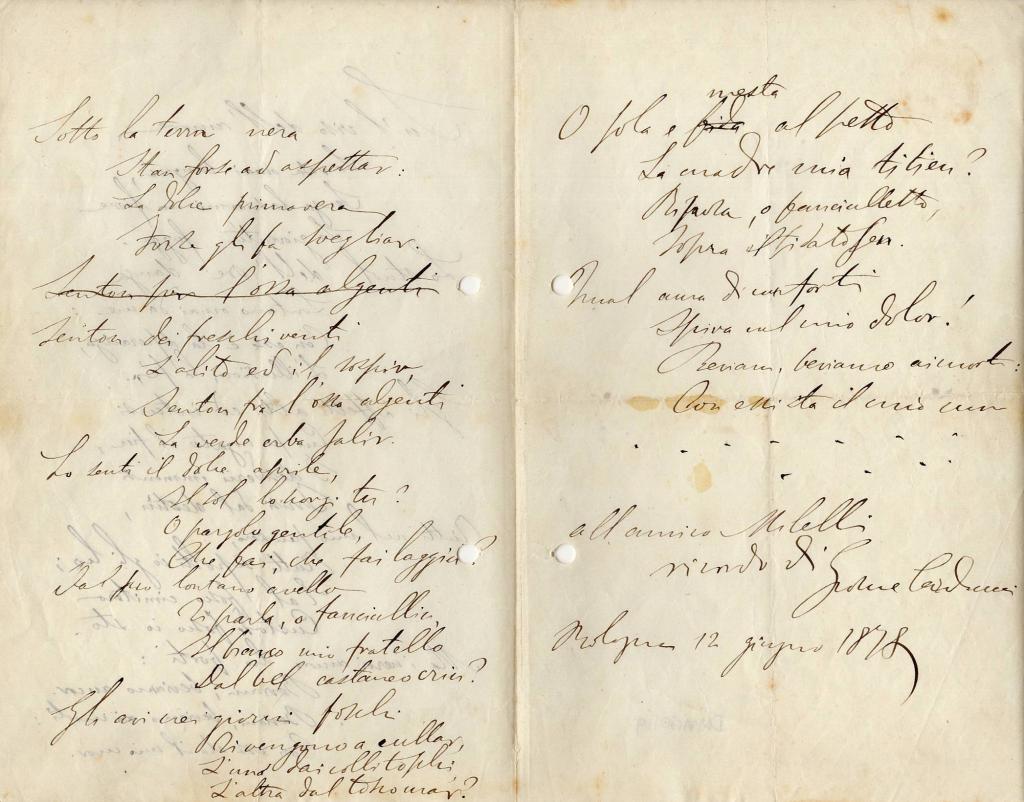 Sotto la terra nera
Stan forse ad aspettar:
La dolce primavera
Forse gli fa svegliar.
Senton fra l'ossa algenti
Senton dei freschi venti
L'alito ed il sospir,
Senton fra l'ossa algenti
La verde erba salir.
Lo senti il dolce aprile,
Il sol lo scorgi tu?
O pargolo gentile,
Che fai, che fai laggiù?
Dal tuo lontano avello
Ti parla, o fanciullin,
Il bianco mio fratello
Dal bel castaneo crin?
Gli avi nei giorni foschi
Ti vengono a cullar,
L'uno dai colli toschi,
L'altra dal tosco mar?
mesta
O sola e fida al petto
La madre mia ti tien?
Riposa, o fanciulletto,
Sopra il fidato sen.
Qual aura di conforti
Spira sul mio dolor!
Beviam, beviamo ai morti:
Con essi sta il mio cuor
all'amico Milelli
ricordo di Giosue Carducci
Bologna 12 giugno 1878